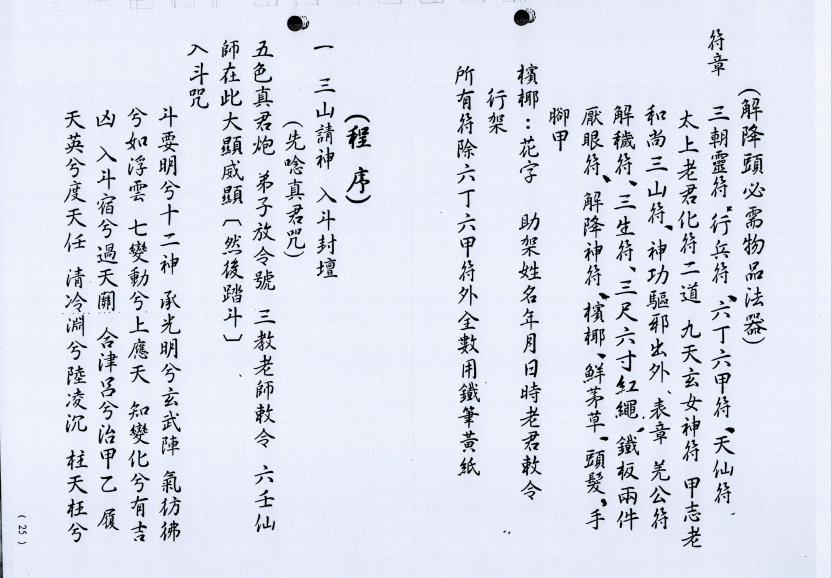 (解降頭必需物品法器)
符章　三朝靈符、行兵符、六丁六甲符、天仙符、
太上老君化符二道　九天玄女神符　甲志老
和尚三山符、神功驅邪出外、表章　羌公符
解穢符、三生符、三尺六寸紅繩、鐵板兩件
厭眼符、解降神符、檳椰、鮮茅草、頭髮、手
腳甲
檳椰：花字　助架姓名年月日時老君敕令
行架
所有符除六丁六甲符外全數用鐵筆黃紙
(程序)
一　三山請神　入斗封壇
(先唸真君咒)
五色真君炮　弟子放令號　三教老師敕令　六壬仙
師在此大顯威顯〔然後踏斗〕
入斗咒
斗要明兮十二神　承光明兮玄武陣　氣彷彿
兮如浮雲　七變動兮上應天　知變化兮有吉
凶　入斗宿兮過天關　合津呂兮治甲乙　履
天英兮度天任　清冷淵兮陸凌沉　柱天柱兮
(25)